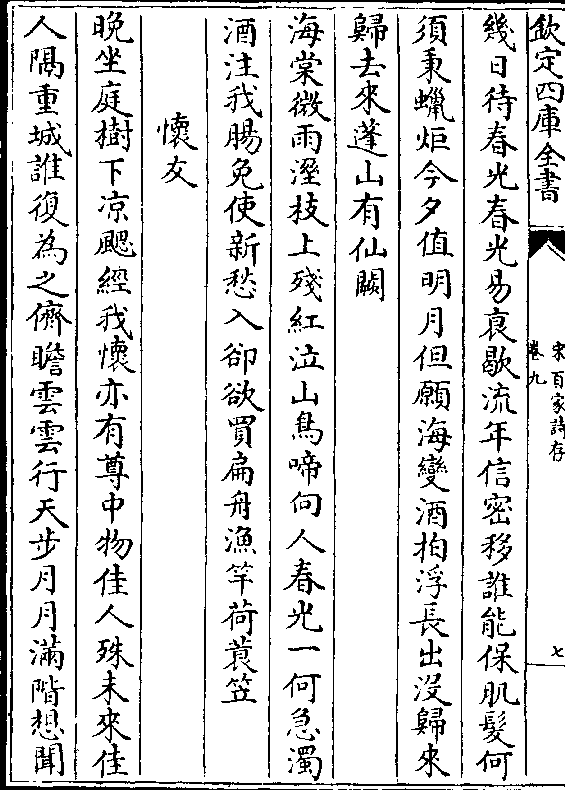 欽定四庫全書
宋百家詩存
卷九
七
幾日待春光春光易衰歇流年信密移誰能保肌髮何
須秉蠟炬今夕值明月但願海變酒柏浮長出沒歸來
歸去來蓬山有仙闕
海棠微雨溼枝上殘紅泣山鳥啼向人春光一何急濁
酒注我腸免使新愁入卻欲買扁舟漁竿荷蓑笠
懷友
晚坐庭樹下凉颸經我懷亦有尊中物佳人殊未來佳
人隔重城誰復為之儕瞻雲雲行天步月月滿階想聞